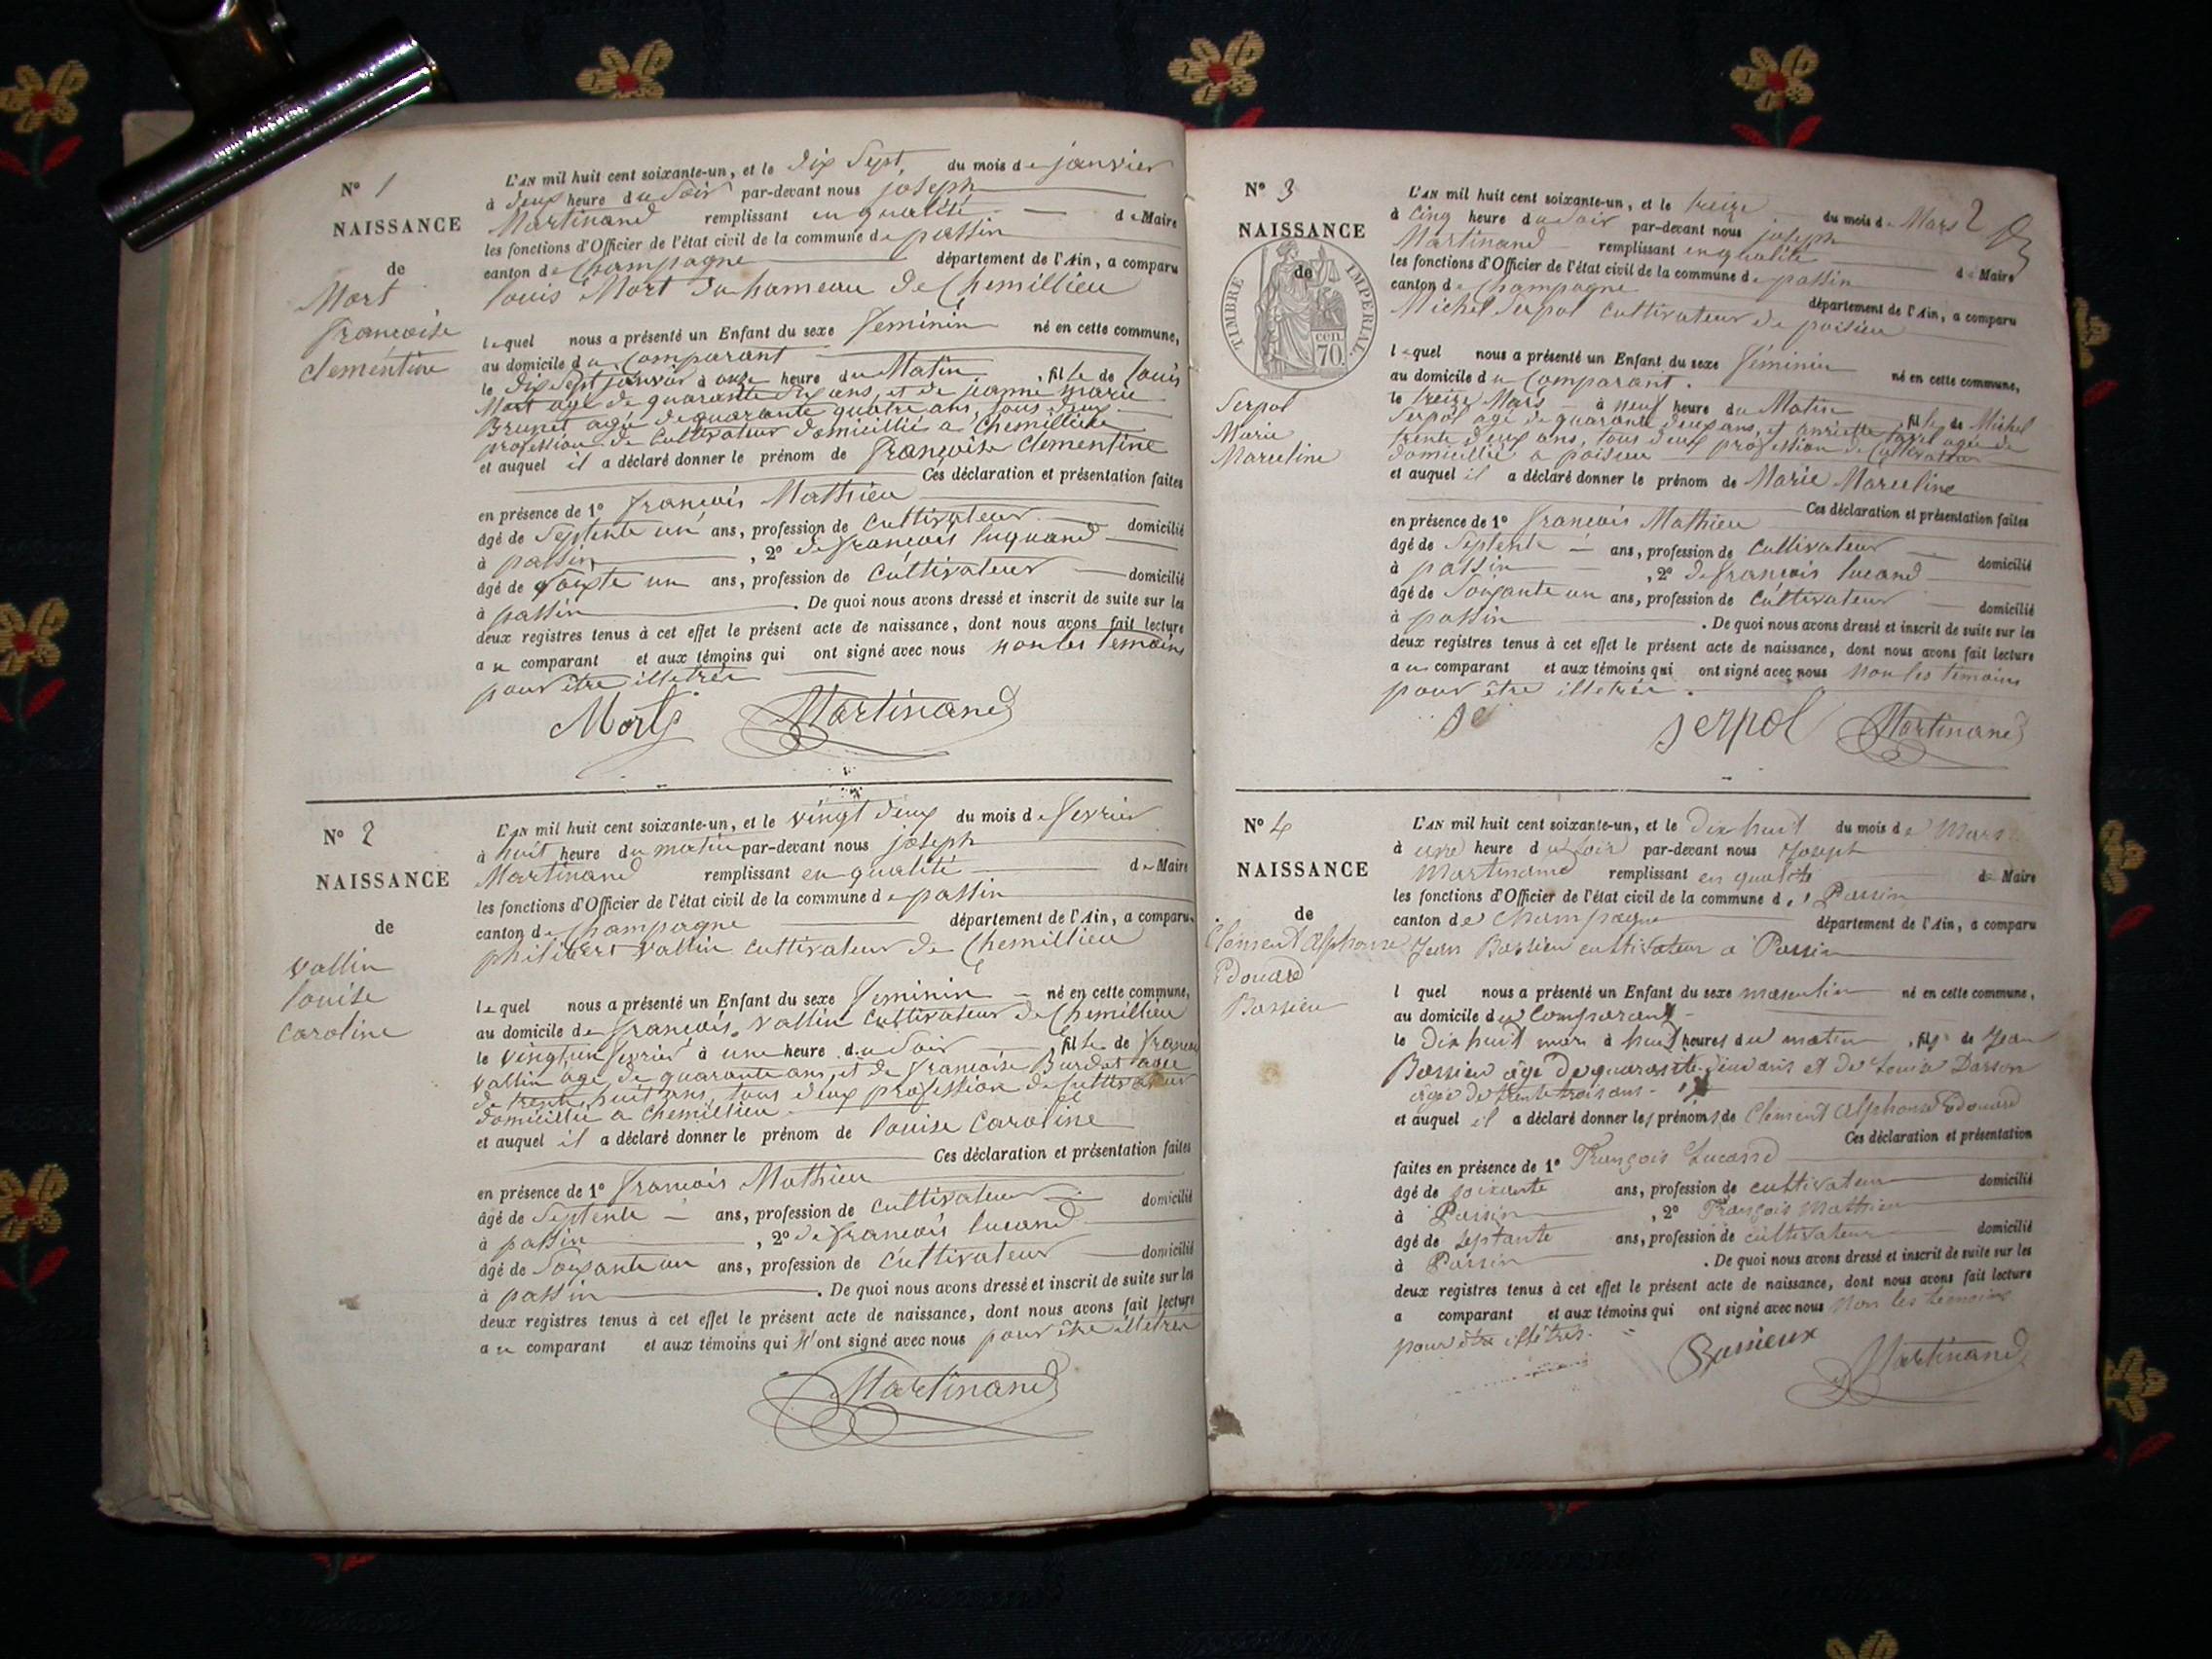 N° 1
NAISSANCE
de
Mort
françoise
clementine
L'AN mil huit cent soixante-un, et le dix sept, du mois de janvier
à deux heure du soir par-devant nous joseph
Martinand remplissant en qualité de Maire
les fonctions d'Officier de l'état civil de la commune de passin
canton de Champagne département de l'Ain, a comparu
louis Mort du hameau de Chemillieu
lequel nous a présenté un Enfant du sexe feminin né en cette commune,
au domicile du comparant
le dix sept janvier à onze heure du Matin, fille de louis
Mort agé de quarante six ans, et de jeanne marie
Brunet agée de quarante quatre ans, tous deux
profession de cultivateur domicilié a Chemillieu
et auquel il a déclaré donner le prénom de françoise clementine
Ces déclaration et présentation faites
en présence de 1° françois Mathieu
âgé de septente un ans, profession de cultivateur domicilié
à passin, 2° de françois luquand
âgé de soixte un ans, profession de cultivateur domicilié
à passin. De quoi nous avons dressé et inscrit de suite sur les
deux registres tenus à cet effet le présent acte de naissance, dont nous avons fait lecture
au comparant et aux témoins qui ont signé avec nous non les temoins
pour être illetrée
Mort Martinand
N° 2
NAISSANCE
de
vallin
louise
caroline
L'AN mil huit cent soixante-un, et le vingt deux du mois de fevrier
à huit heure du matin par-devant nous joseph
Martinand remplissant en qualité de Maire
les fonctions d'Officier de l'état civil de la commune de passin
canton de Champagne département de l'Ain, a comparu.
philibert vallin cultivateur de Chemillieu
lequel nous a présenté un Enfant du sexe feminin né en cette commune,
au domicile de françois vallin cultivateur de Chemillieu
le vingt un fevrier à une heure du soir fille de françois
vallin agé de quarante ans, et de francoise Burdet agée
de trente huit ans, tous deux profession de cultivateur
domicilié a Chemillieu
et auquel il a déclaré donner le prénom de louise caroline
Ces déclaration et présentation faites
en présence de 1° françois Mathieu
âgé de septente ans, profession de cultivateur domicilié
à passin, 2° de françois lucand
âgé de soixante un ans, profession de cultivateur domicilié
à passin. De quoi nous avons dressé et inscrit de suite sur les
deux registres tenus à cet effet le présent acte de naissance, dont nous avons fait lecture
au comparant et aux témoins qui n'ont signé avec nous pour être illetrés
Martinand
N° 3
NAISSANCE
de
TIMBRE IMPERIAL.
cen
70
Serpol
Marie
Marceline
L'AN mil huit cent soixante-un, et le treize du mois de Mars 2
à cinq heure du soir par-devant nous joseph
Martinand remplissant en qualité de Maire
les fonctions d'Officier de l'état civil de la commune de passin
canton de Champagne département de l'Ain, a comparu
Michel Serpol cultivateur de poisieu
lequel nous a présenté un Enfant du sexe féminin né en cette commune,
au domicile du Comparant.
le treize Mars à neuf heure du Matin fille de Michel
Serpol agé de quarante deux ans, et agée de
trente deux ans, tous deux profession de Cultivateur
domicilié a poisieu
et auquel il a déclaré donner le prénom de Marie Marceline
Ces déclaration et présentation faites
en présence de 1° françois Mathieu
âgé de septente ans, profession de cultivateur domicilié
à passin, 2° de françois lucand
âgé de soixante un ans, profession de cultivateur domicilié
à passin. De quoi nous avons dressé et inscrit de suite sur les
deux registres tenus à cet effet le présent acte de naissance, dont nous avons fait lecture
au comparant et aux témoins qui ont signé avec nous non les temoins
pour être illetrée.
se serpol Martinand
N° 4
NAISSANCE
de
Clement Alphonse
Edouard
Bassieu
L'AN mil huit cent soixante-un, et le dix huit du mois de Mars
à une heure du soir par-devant nous Joseph
Martinand remplissant en qualité de Maire
les fonctions d'Officier de l'état civil de la commune de Passin
canton de Champagne département de l'Ain, a comparu
Jean Bassieu cultivateur a Passin
l quel nous a présenté un Enfant du sexe masculin né en cette commune,
au domicile du comparant
le dix huit mars à huit heures du matin, fils de Jean
Bassieu agé de quarante deux ans et de Louise Darson
agée de trente trois ans.
et auquel il a déclaré donner les prénoms de Clement Alphonse Edouard
Ces déclaration et présentation
faites en présence de 1° François Lucand
âgé de soixante ans, profession de cultivateur domicilié
à Passin, 2° François Mathieu
âgé de septante ans, profession de cultivateur domicilié
à Passin. De quoi nous avons dressé et inscrit de suite sur les
deux registres tenus à cet effet le présent acte de naissance, dont nous avons fait lecture
a comparant et aux témoins qui ont signé avec nous non les temoins
pour être illétrés.
Bassieux Martinand